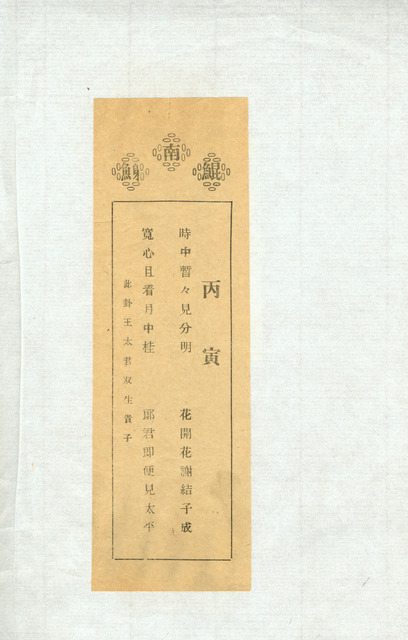 鯤南鯓
丙寅
時中暫々見分明 花開花謝結子成
寬心且看月中桂 郎君即便見太平
此卦王太君双生貴子